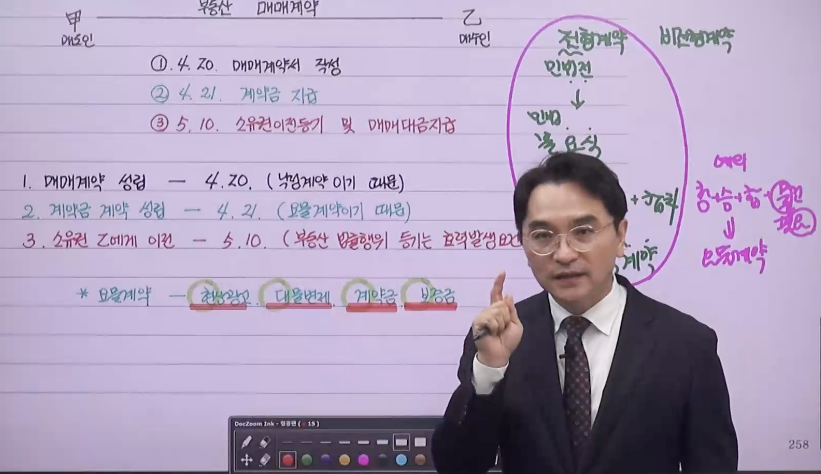 부동산 매매계약
甲 乙
매도인 매수인
① 4. 20. 매매계약서 작성
② 4. 21. 계약금 지급
③ 5. 10. 소유권이전등기 및 매매대금지급
1. 매매계약 성립 — 4. 20. (낙성계약이기 때문)
2. 계약금 계약 성립 — 4. 21. (요물계약이기 때문)
3. 소유권 乙에게 이전 — 5. 10. (부동산 법률행위 등기는 효력발생요건
* 요물계약 — 현상광고. 대물변제. 계약금. 보증금
전형계약 비전형계약
민법전
↓
민법
불요식
계약
예외
청+승+합+물건
↓
요물계약
DocZoom Ink - 일광펜 ( 15 )
258